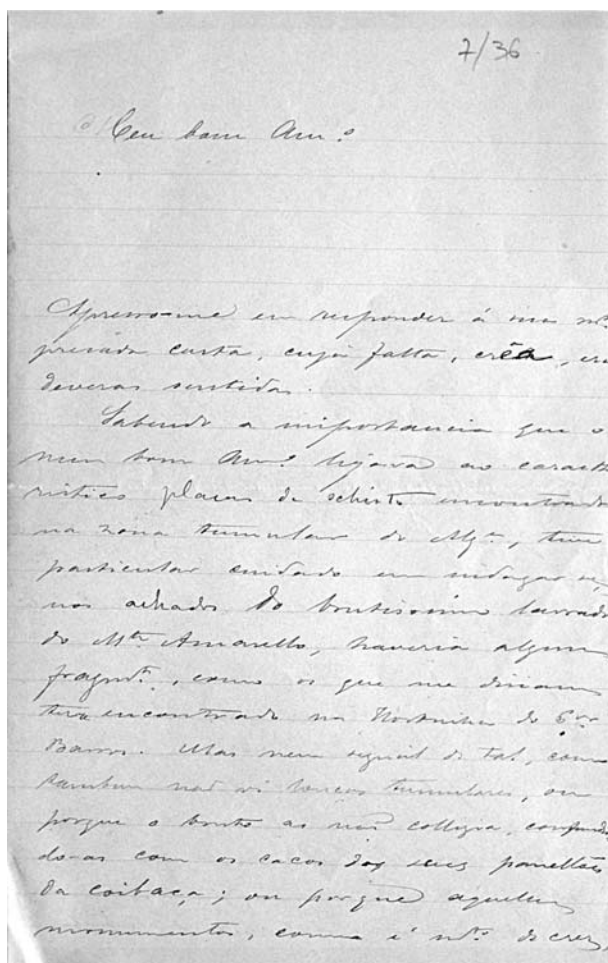 7/36
Meu bom Am.º
Apresso-me em responder á sua m.to
presada carta, cuja falta, creia, era
deveras sentida.
Sabendo a importancia que o
meu bom Am.º ligava ao caracte
ristico placas de schisto encontrado
na zona tumular do Alg.e, tive
particular cuidado em indagar se,
nos achados do brutissimo lavrador
do M.te Amarello, haveria algum
fragmt.º, como os que me diziam
ter encontrado na Hortinha do
Barros. Mas nem signal de tal, como
tambem não vi loucas tumulares, ou
porque o bruto as não colligia, confundin
do-as com os cacos dos seus panellões
da coibaça; ou porque aquelles
monumentos, como é m.to de crer,